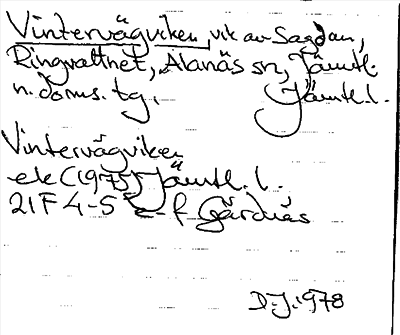 Vintervägviken, vik av Sagdan,
Ringvattnet, Alanäs sn, Jämtl.
n. doms. tg, Jämtl. l.
Vintervägviken
ek (1975) Jämtl. l.
21F 4-5 e-f Gärdnäs
D.J. 1978